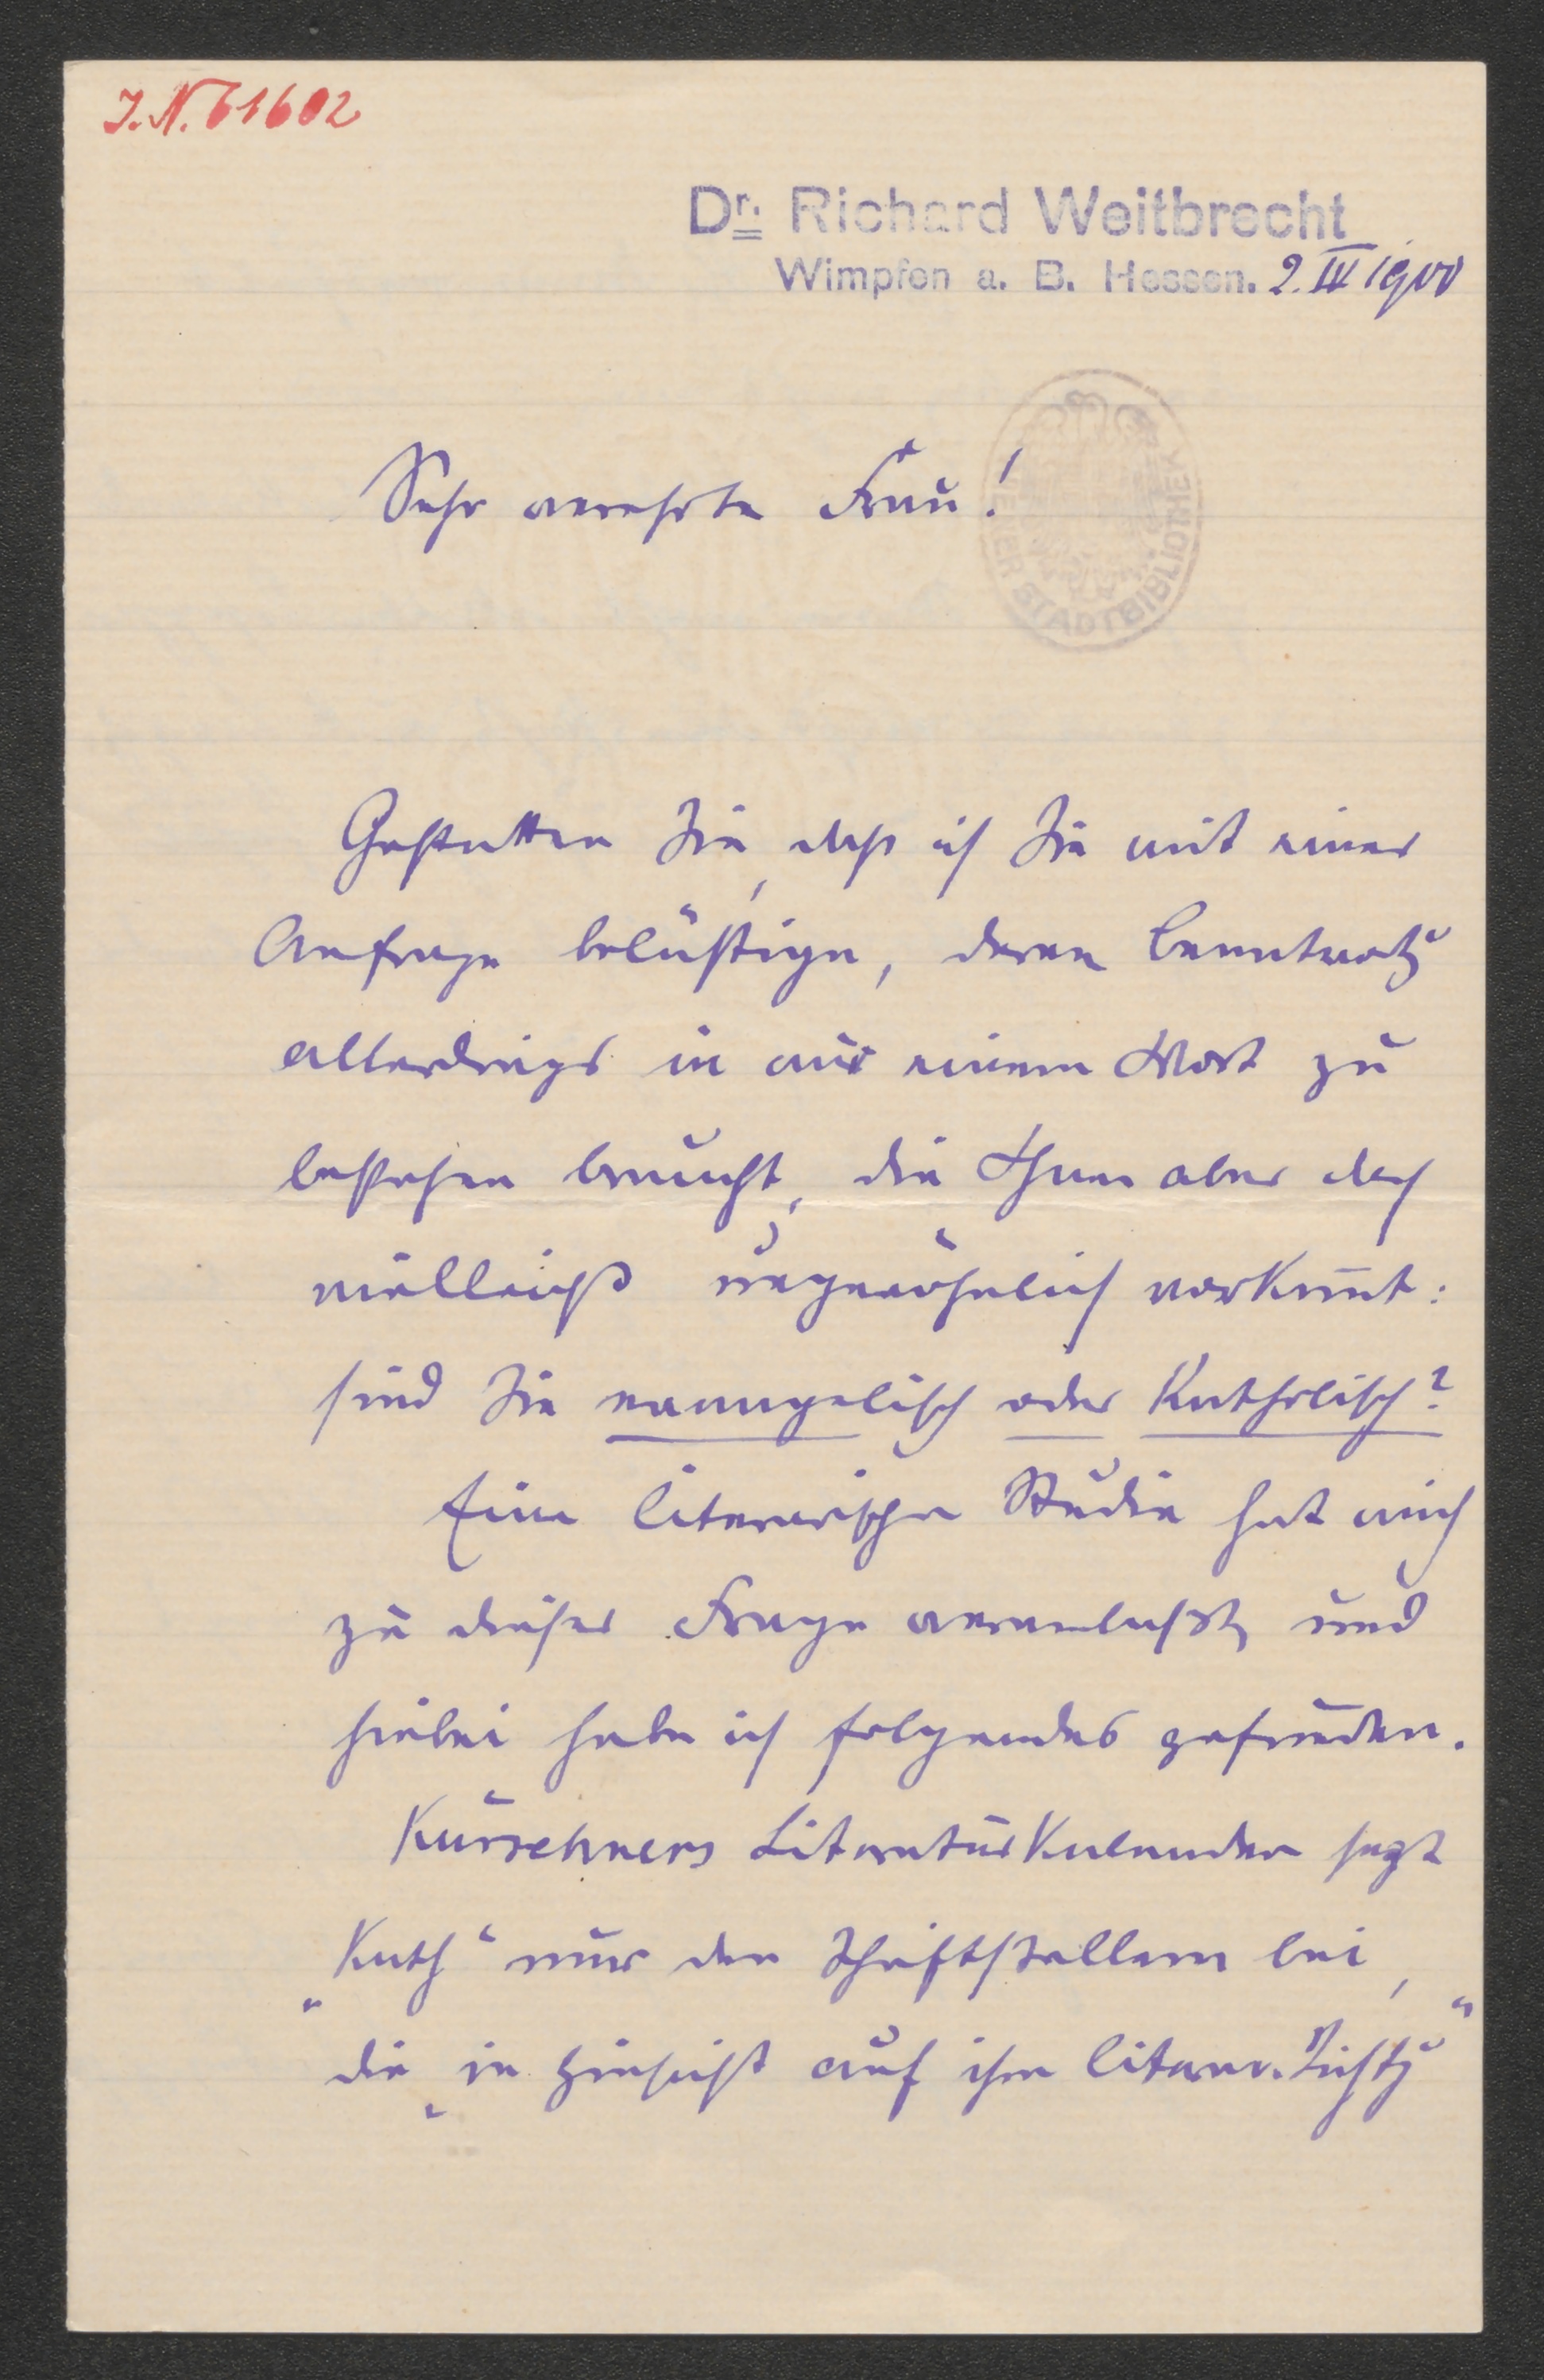 J.N. 61602
Dr. Richard Weitbrecht
Wimpfen a. B. Hessen. 2. IV 1900
STADTBIBLIOTHEK
Sehr verehrte Frau!
Gestatten Sie, daß ich Sie mit einer
Anfrage belästige, deren Beantwortg
allerdings in nur einem Wort zu
bestehen braucht, die Ihnen aber doch
vielleicht ungewöhnlich vorkom̄t:
sind Sie evangelisch oder katholisch?
Eine literarische Studie hat mich
zu dieser Frage veranlaßt, und
hiebei habe ich folgendes gefunden.
Kürschners Literaturkalender sagt
„Kath“ nur den Schriftstellern bei,
die „in Hinsicht auf ihre literar. Richtg“